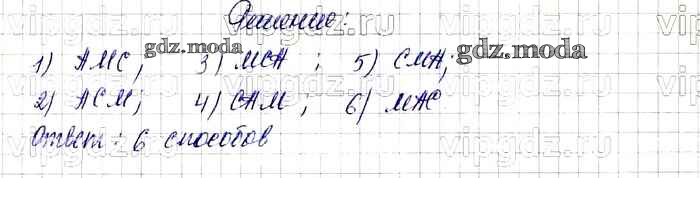 Решение:
1) АМС; 3) МСА; 5) СМА;
2) АСМ; 4) САМ; 6) МАС
Ответ: 6 способов
gdz.moda
gdz.moda
vipgdz.ru
vipgdz.ru
vipgdz.ru
vipgdz.ru